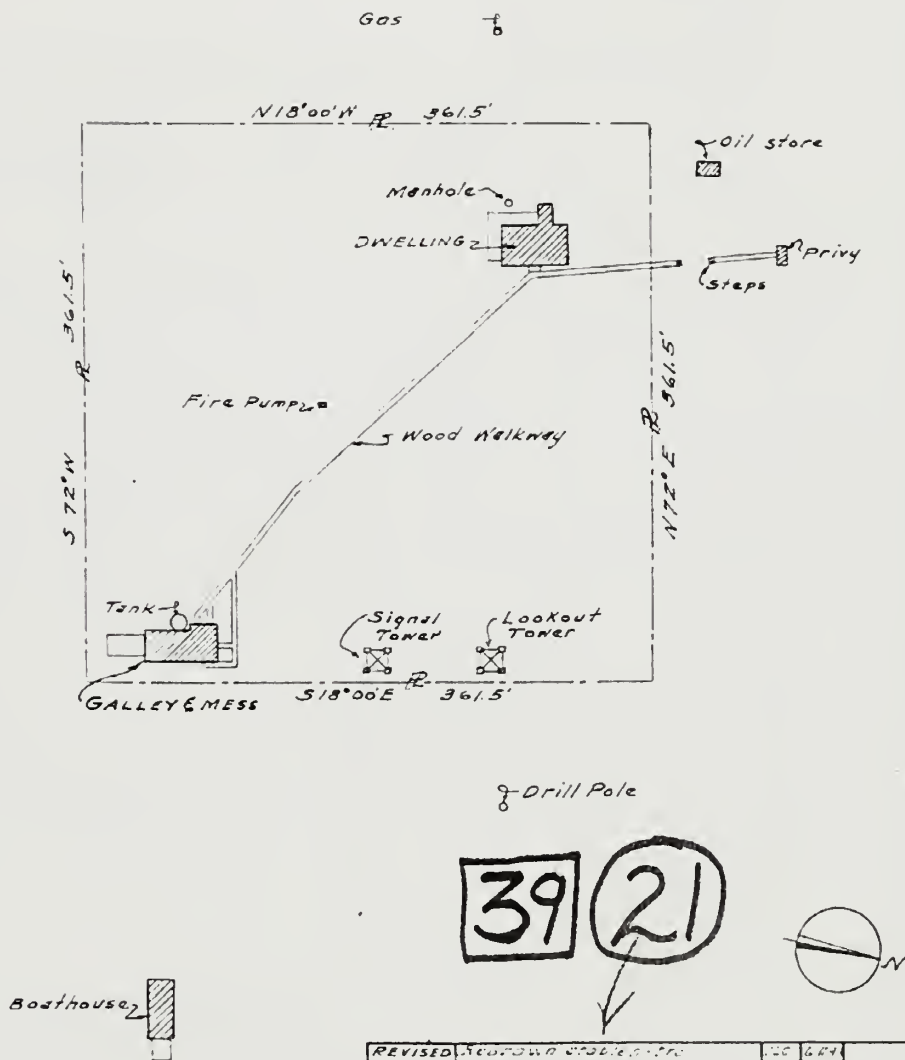 Gas
N 18°00' W PL 361.5'
Oil store
Manhole
DWELLING
Privy
Steps
S 72° W PL 361.5'
N 72° E PL 361.5'
Fire Pump
Wood Walkway
Tank
Signal
Tower
Lookout
Tower
GALLEY & MESS
S 18°00' E PL 361.5'
Drill Pole
39
21
N
Boathouse
REVISED